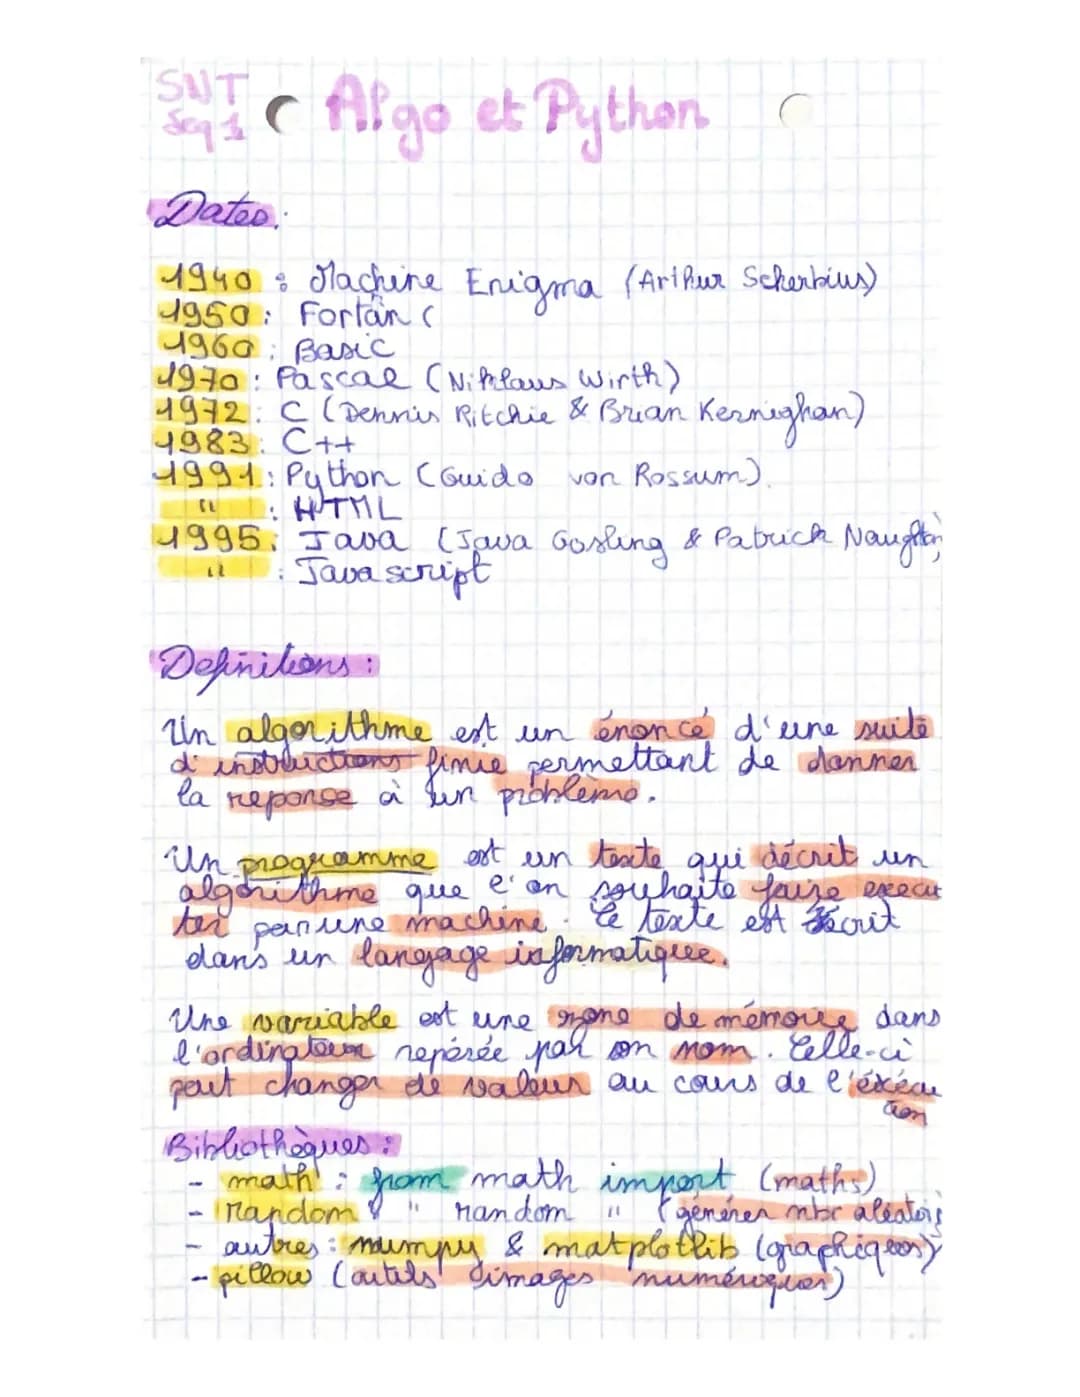 SNT
Seq 1
Algo et Python
Dates:
1940 : Machine Enigma (Arthur Scherbius)
1950 : Fortan (
1960 : Basic
1970 : Pascal (Niklaus Wirth)
1972 : C (Dennis Ritchie & Brian Kernighan)
1983 : C++
1991 : Python (Guido van Rossum).
" : HTML
1995 : Java (Java Gosling & Patrick Naughton)
" : Javascript
Definitions :
Un algorithme est un énoncé d'une suite
d'instructions finie permettant de donner
la reponse à un problème.
Un programme est un texte qui décrit un
algorithme que l'on souhaite faire execu
ter par une machine. Le texte est écrit
dans un langage informatique.
Une variable est une zone de mémoire dans
l'ordinateur repérée par son nom. Celle-ci
peut changer de valeur au cours de l'éxécu
tion
Bibliothèques :
- math : from math import (maths)
- random : " random " (générer nbr aléatoire
- autres : numpy & matplotlib (graphiques)
- pillow (outils d'images numériques)